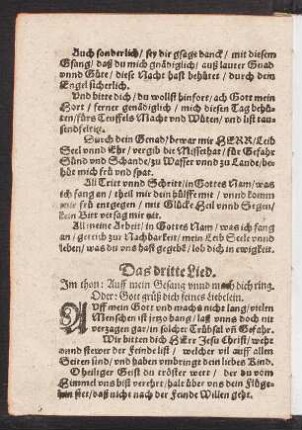 Auch sonderlich / sey dir gsagt danck / mit diesem
Gsang / daß du mich gnädiglich / auß lauter Gnad
vnnd Güte / diese Nacht hast behütet / durch dein
Engel sicherlich.
Vnd bitte dich / du wollst hinfort / ach Gott mein
Hort / ferner genädiglich / mich diesen Tag behü-
ten / fürs Teuffels Macht vnd Wüten / vnd list tau-
sendfeltig.
Durch dein Genad / bewar mir HERR / Leib
Seel vnnd Ehr / vergib die Missethat / für Gefahr
Sünd vnd Schande / zu Wasser vnnd zu Lande / be-
hüt mich frü vnd spat.
All Tritt vnnd Schritt / in Gottes Nam / was
ich fang an / theil mir dein hülffe mit / vnnd komm
mir frü entgegen / mit Glücke Heil vnnd Segen /
kein Bitt versag mir nit.
All meine Arbeit / in Gottes Nam / was ich fang
an / gereich zur Nachbarkeit / mein Leib Seele vnnd
leben / was du vns hast gegebē / lob dich in ewigkeit.
Das dritte Lied.
Im thon: Auff mein Gesang vnnd mach dich ring.
Oder: Gott grüß dich feines liebelein.
AVff mein Gott vnd machs nicht lang / vielen
Menschen ist jetzo bang / laß vnns doch nit
verzagen gar / in solcher Trübsal vñ Gefahr.
Wir bitten dich HErr Jesu Christ / wehr
vnnd stewer der Feinde list / welcher vil auff allen
Seiten sind / vnd haben vmbringt dein liebes Kind.
O heiliger Geist du tröster wert / der du vom
Himmel vns bist verehrt / halt über vns dein Flüge-
lein stet / daß nicht nach der Feinde Willen geht.